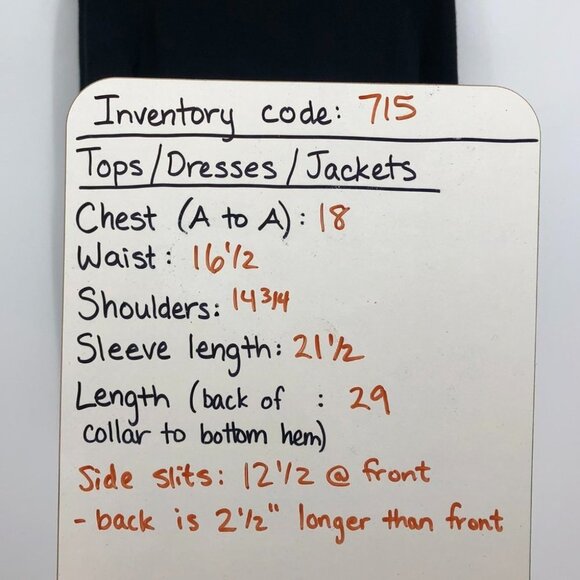 Inventory code: 715
Tops/Dresses/Jackets
Chest (A to A): 18
Waist: 16 1/2
Shoulders: 14 3/4
Sleeve length: 21 1/2
Length (back of : 29
collar to bottom hem)
Side slits: 12 1/2 @ front
- back is 2 1/2" longer than front